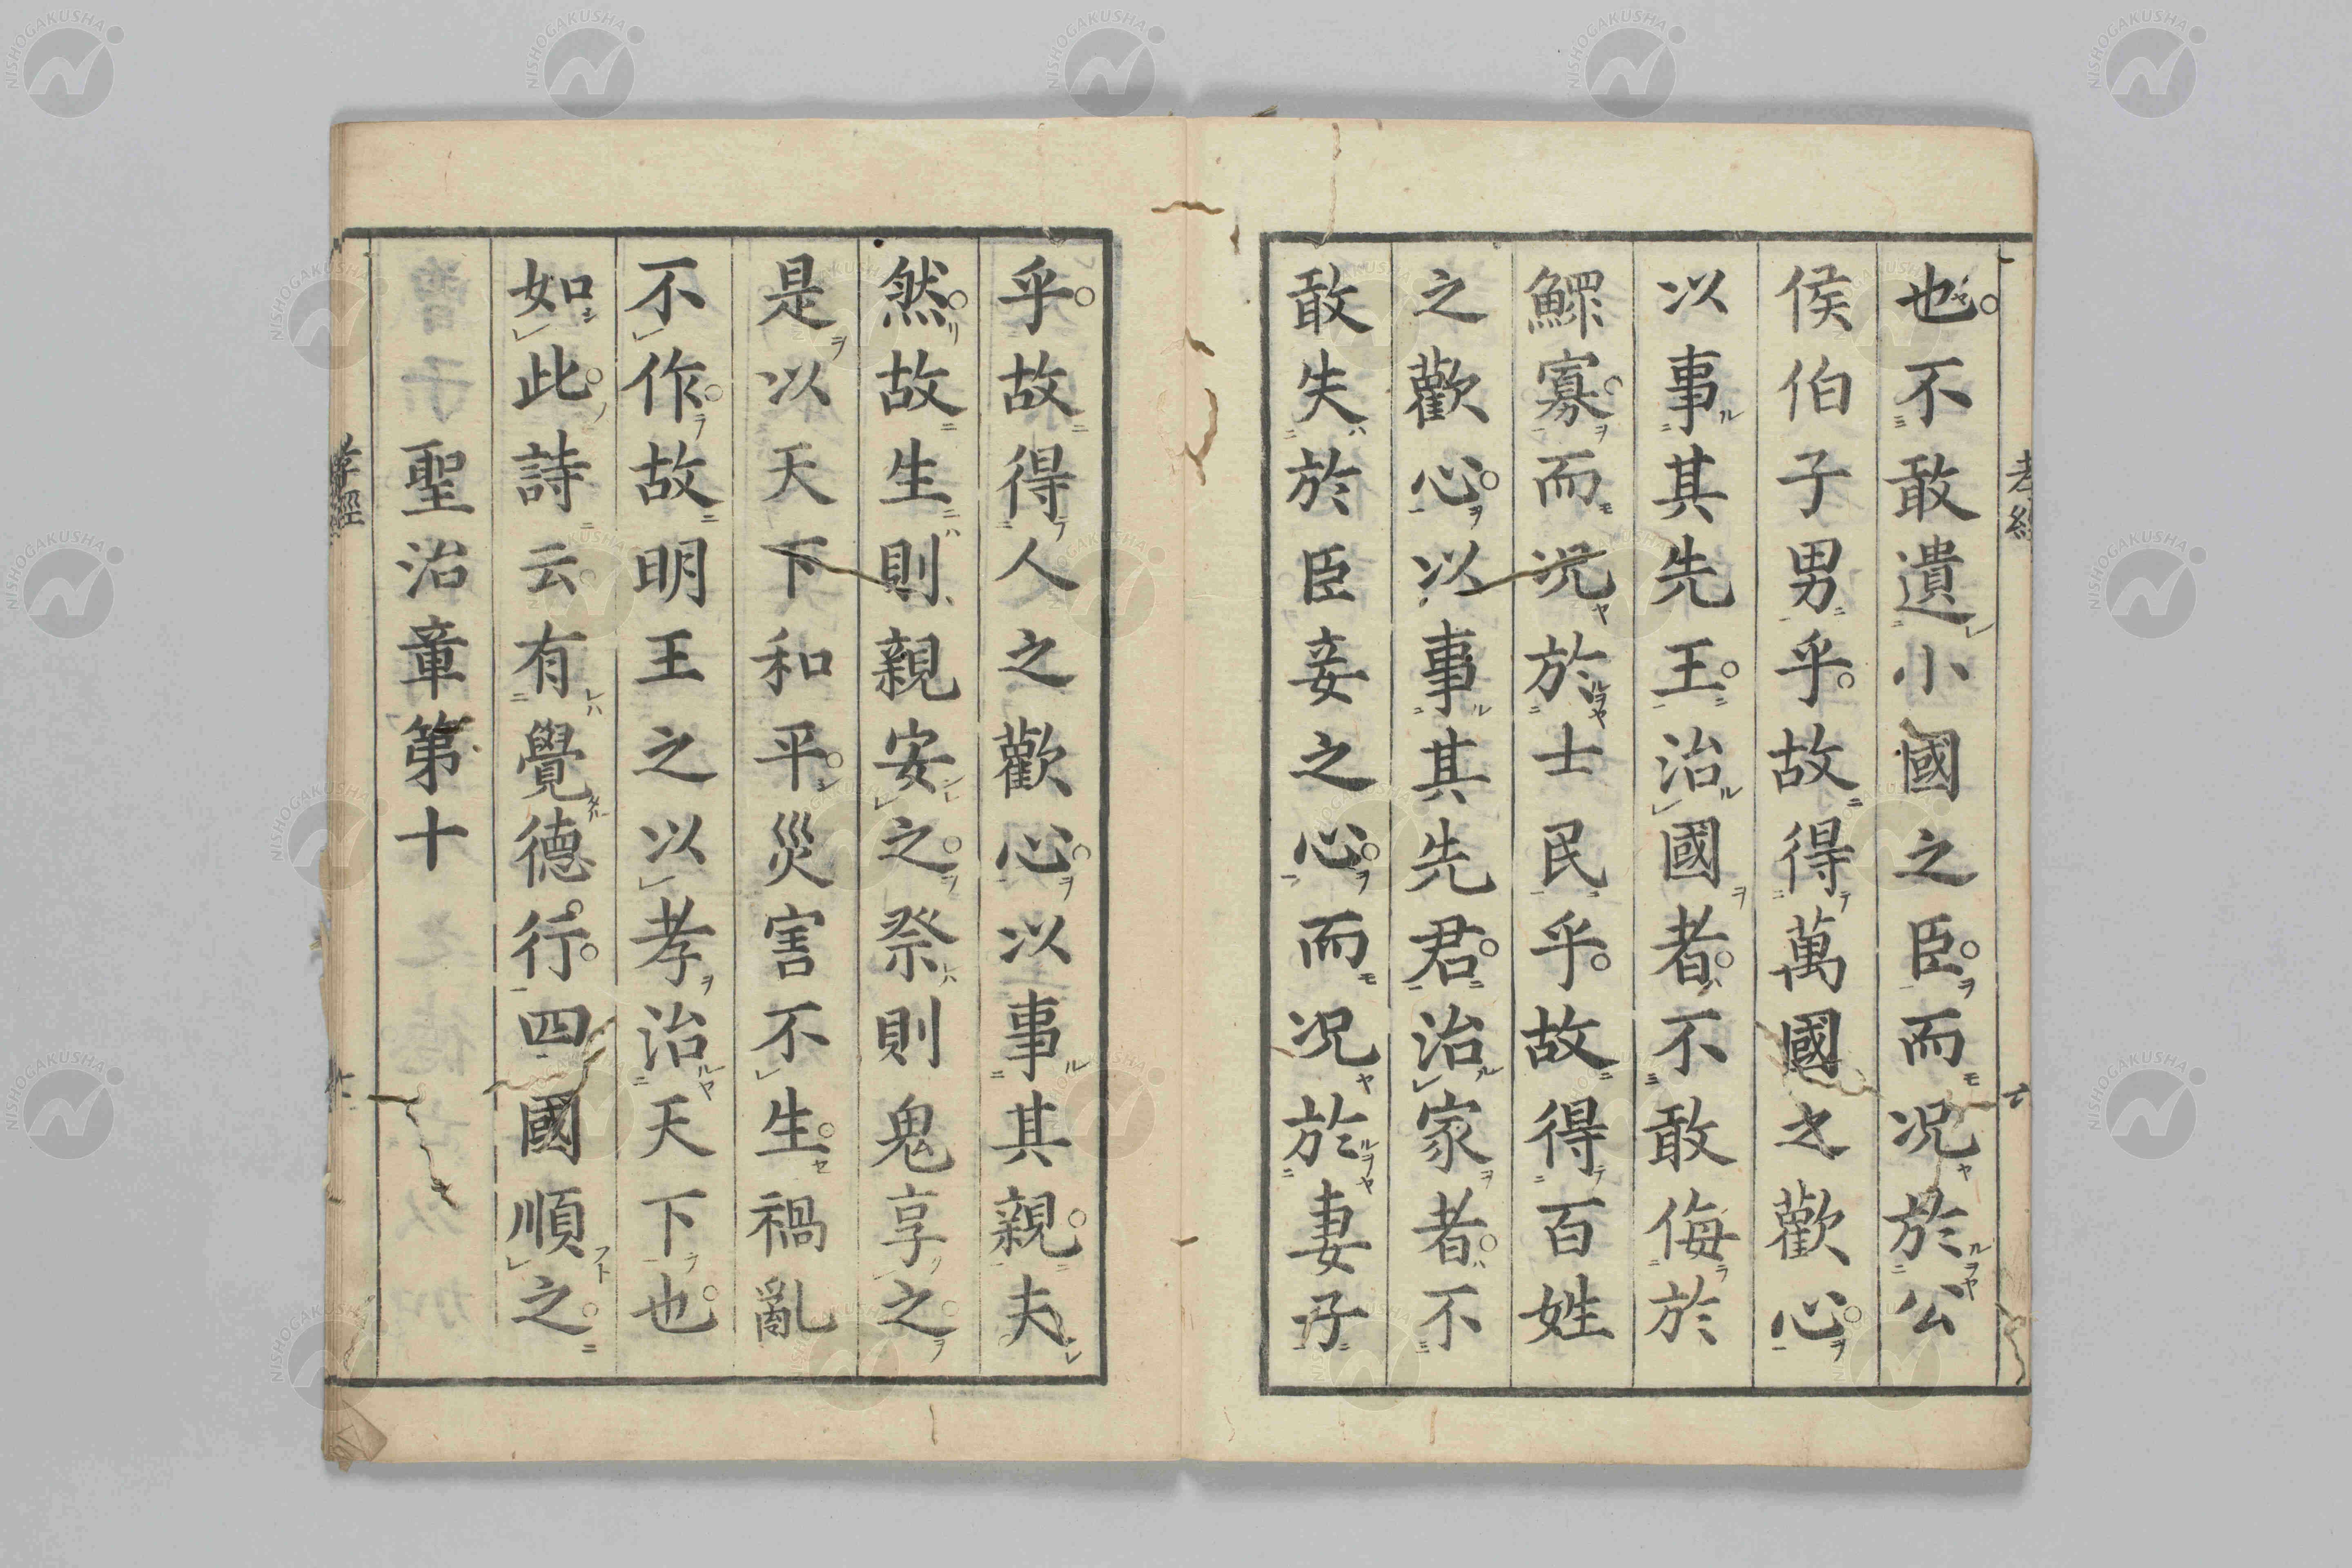 也不敢遺小國之臣而况於公
侯伯子男乎故得萬國之歡心
以事其先王治國者不敢侮於
鰥寡而况於士民乎故得百姓
之歡心以事其先君治家者不
敢失於臣妾之心而况於妻子
乎故得人之歡心以事其親夫
然故生則親安之祭則鬼享之
是以天下和平災害不生禍亂
不作故明王之以孝治天下也
如此詩云有覺德行四國順之
聖治章第十
孝經
NISHOGAKUSHA